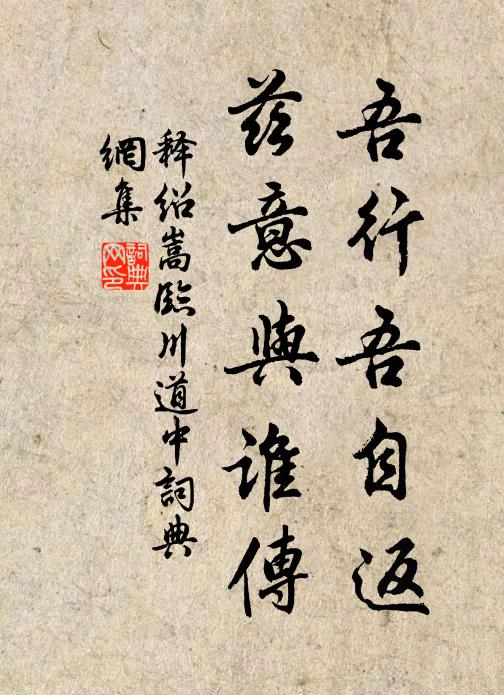 吾行吾自返
茲意與誰傳
释绍嵩臨川道中詞典
網集
詞典
网印